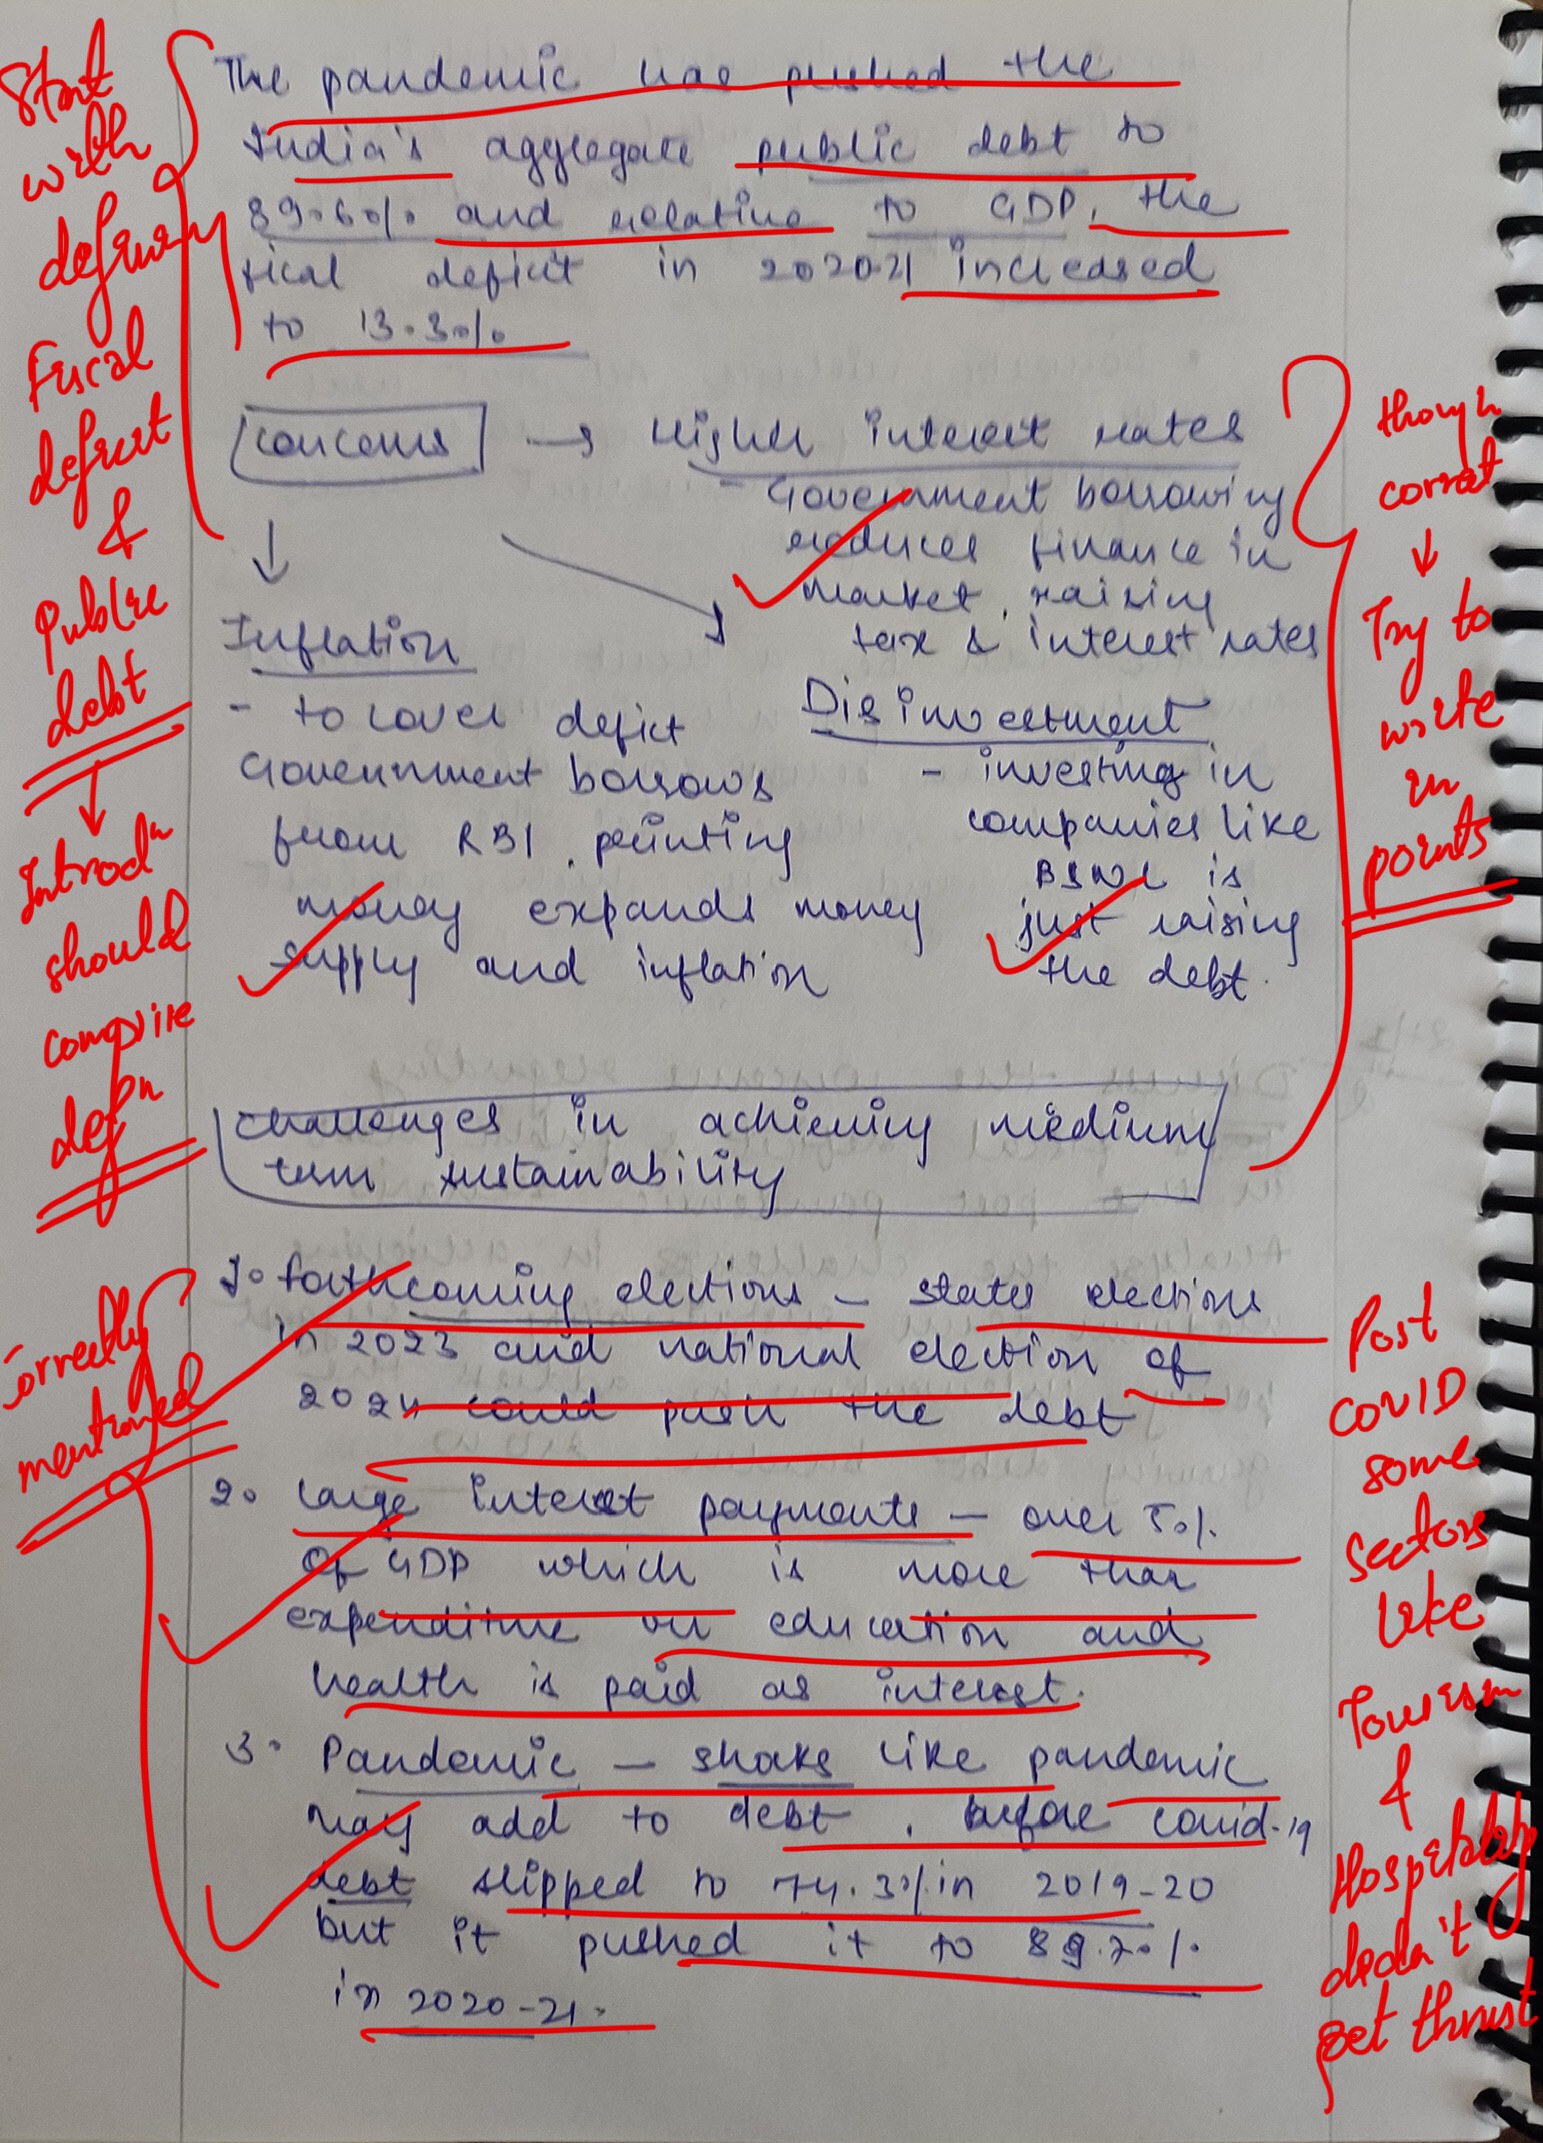 The pandemic has pushed the
India's aggregate public debt to
89.6% and relative to GDP, the
fiscal deficit in 2020-21 increased
to 13.3%
Start
with
defining
Fiscal
deficit
&
Public
debt
↓
Introdn
should
comprise
defn
Concerns → Higher interest rates
- Government borrowing
reduces finance in
market, raising
tax & interest rates
Inflation
- to cover deficit
Government borrows
from RBI, printing
money expands money
supply and inflation
Disinvestment
- investing in
companies like
BSNL is
just raising
the debt.
though
correct
↓
Try to
write
in
points
Challenges in achieving medium
term sustainability
1. Forthcoming elections - states elections
in 2023 and national election of
2024 could push the debt
2. Large interest payments - over 5%
of GDP which is more than
expenditure on education and
health is paid as interest.
3. Pandemic - shoks like pandemic
may add to debt, before covid-19
debt slipped to 74.3% in 2019-20
but it pushed it to 89.7%
in 2020-21.
Correctly
mentioned
Post
COVID
some
sectors
like
Tourism
&
Hospitality
didn't
get thrust